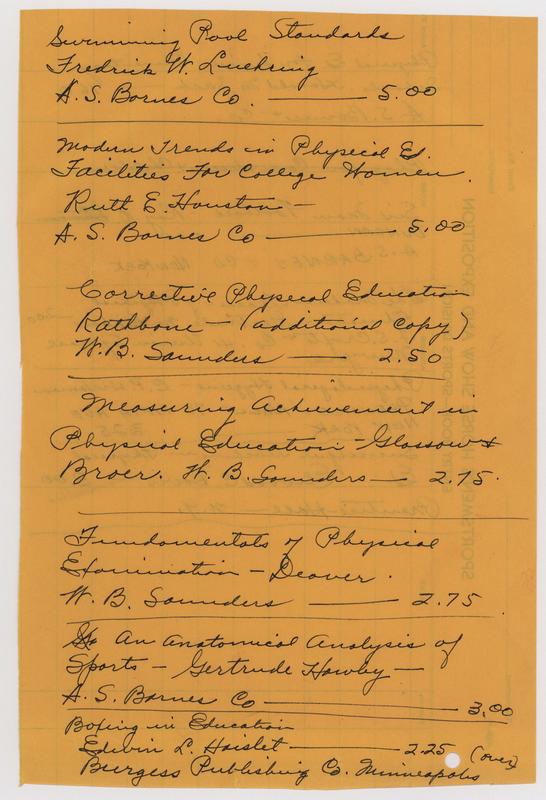 Swimming Pool Standards
Fredrick W. Luehring
A. S. Barnes Co. — 5.00
Modern Trends in Physical Ed.
Facilities For College Women.
Ruth E. Houston —
A. S. Barnes Co — 5.00
Corrective Physical Education
Rathbone — (additional copy)
W. B. Saunders — 2.50
Measuring Achievement in
Physical Education - Glassow &
Broer. W. B. Saunders — 2.75.
Fundamentals of Physical
Examination — Deaver.
W. B. Saunders — 2.75
An Anatomical Analysis of
Sports — Gertrude Hawley —
A. S. Barnes Co — 3.00
Boxing in Education
Edwin L. Haislet — 2.25 (over)
Burgess Publishing Co. Minneapolis